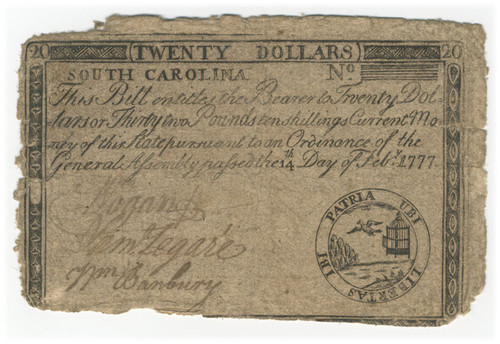 20 (TWENTY DOLLARS) 20
SOUTH CAROLINA. No.
This Bill entitles the Bearer to Twenty Dol-
lars or Thirty two Pounds ten shillings Current Mo
ney of this State pursuant to an Ordinance of the
General Assembly passed the 14th Day of Febr. 1777.
Logan
Legaré
Wm Danbury
PATRIA UBI LIBERTAS IBI